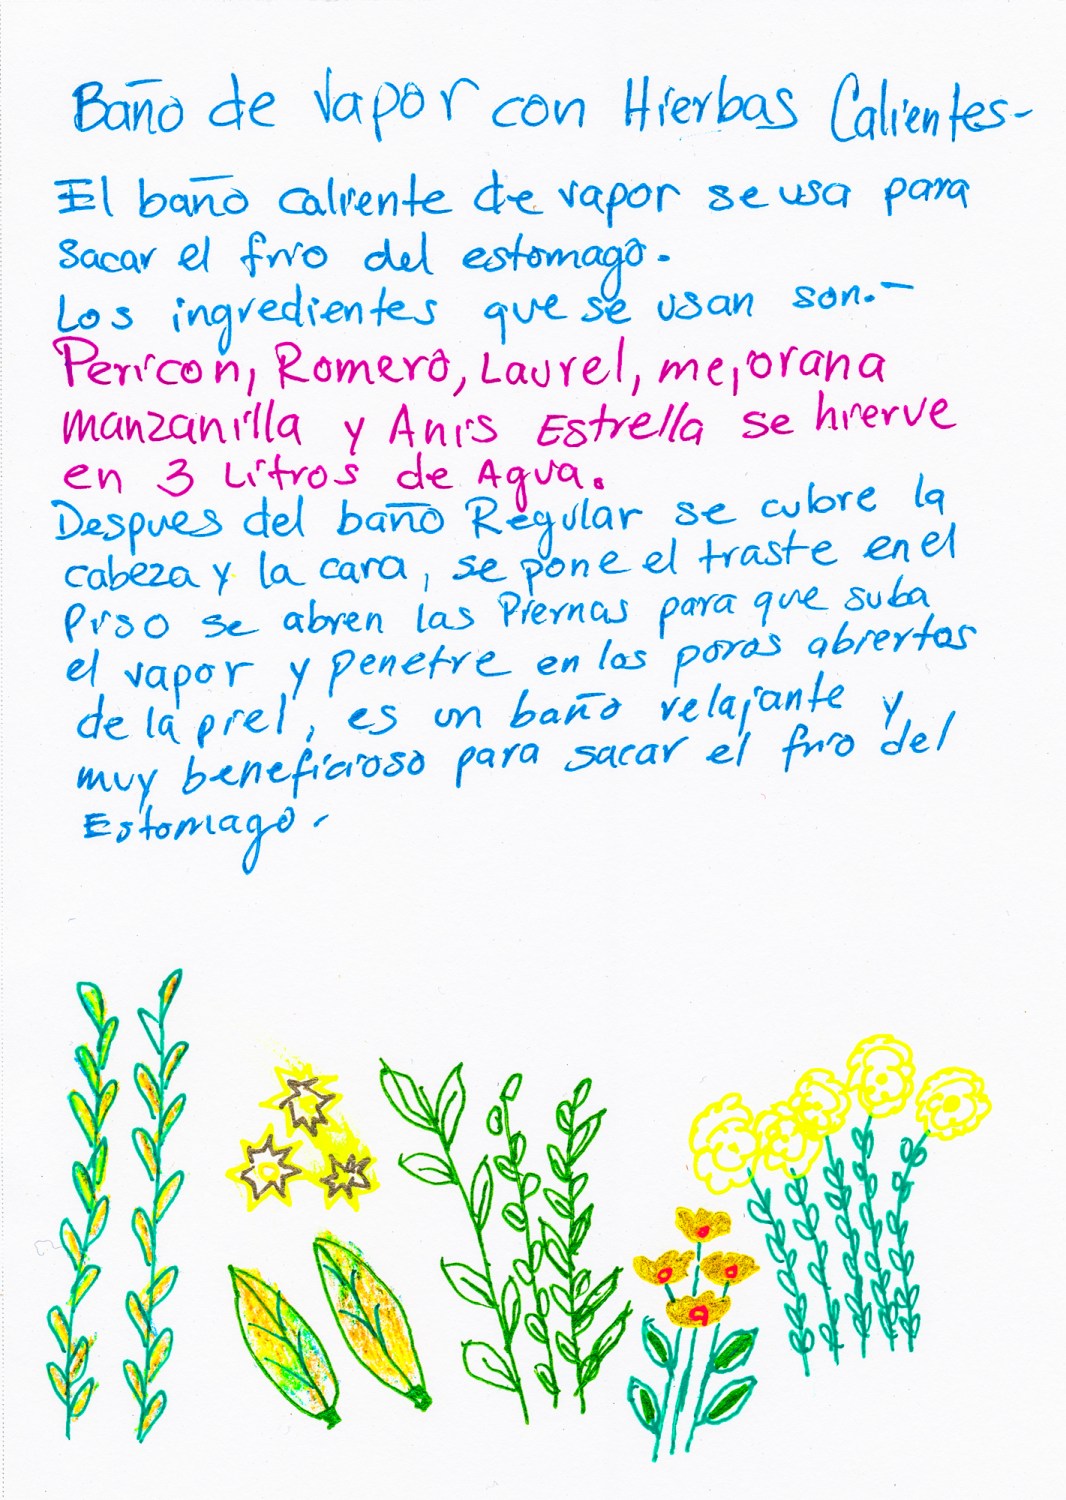 Baño de vapor con Hierbas Calientes-
El baño caliente de vapor se usa para
Sacar el frio del estomago.
Los ingredientes que se usan son.-
Pericon, Romero, Laurel, mejorana
manzanilla y Anis Estrella se hierve
en 3 Litros de Agua.
Despues del baño Regular se cubre la
cabeza y la cara, se pone el traste en el
Piso se abren las Piernas para que suba
el vapor y penetre en los poros abiertos
de la piel, es un baño relajante y
muy beneficioso para sacar el frio del
Estomago.